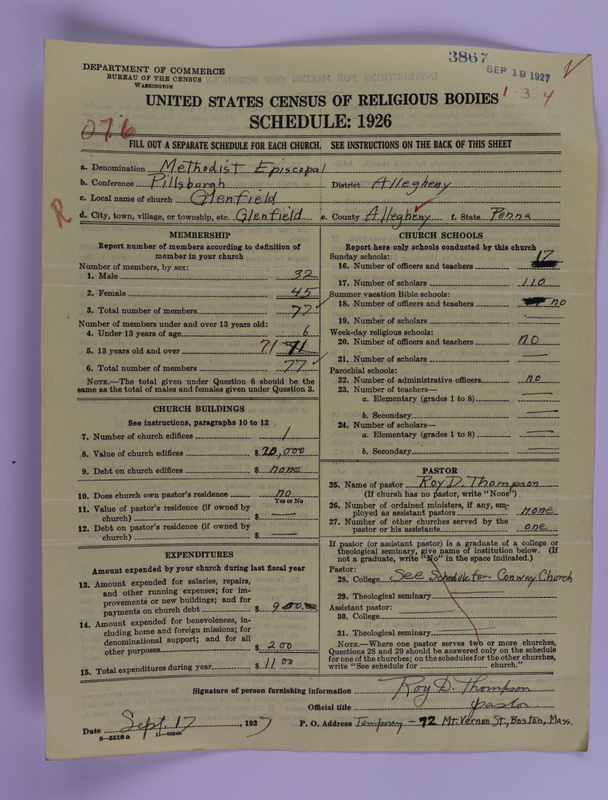 3867
SEP 19 1927
DEPARTMENT OF COMMERCE
BUREAU OF THE CENSUS
WASHINGTON
UNITED STATES CENSUS OF RELIGIOUS BODIES
1-3-4
SCHEDULE: 1926
076
FILL OUT A SEPARATE SCHEDULE FOR EACH CHURCH. SEE INSTRUCTIONS ON THE BACK OF THIS SHEET
a. Denomination Methodist Episcopal
b. Conference Pillsburgh District Allegheny
c. Local name of church Glenfield
R
d. City, town, village, or township, etc. Glenfield e. County Allegheny f. State Penna
MEMBERSHIP
Report number of members according to definition of
member in your church
Number of members, by sex:
1. Male 32
2. Female 45
3. Total number of members 77
Number of members under and over 13 years old:
4. Under 13 years of age 6
5. 13 years old and over 71
6. Total number of members 77
NOTE.—The total given under Question 6 should be the
same as the total of males and females given under Question 3.
CHURCH BUILDINGS
See instructions, paragraphs 10 to 12
7. Number of church edifices 1
8. Value of church edifices $20,000
9. Debt on church edifices $ none
10. Does church own pastor's residence no
Yes or No
11. Value of pastor's residence (if owned by
church) $ —
12. Debt on pastor's residence (if owned by
church) $ —
EXPENDITURES
Amount expended by your church during last fiscal year
13. Amount expended for salaries, repairs,
and other running expenses; for im-
provements or new buildings; and for
payments on church debt $ 900.00
14. Amount expended for benevolences, in-
cluding home and foreign missions; for
denominational support; and for all
other purposes $ 200
15. Total expenditures during year $ 1100
CHURCH SCHOOLS
Report here only schools conducted by this church
Sunday schools:
16. Number of officers and teachers 17
17. Number of scholars 110
Summer vacation Bible schools:
18. Number of officers and teachers no
19. Number of scholars —
Week-day religious schools:
20. Number of officers and teachers no
21. Number of scholars —
Parochial schools:
22. Number of administrative officers no
23. Number of teachers—
a. Elementary (grades 1 to 8) —
b. Secondary —
24. Number of scholars—
a. Elementary (grades 1 to 8) —
b. Secondary —
PASTOR
25. Name of pastor Roy D. Thompson
(If church has no pastor, write "None")
26. Number of ordained ministers, if any, em-
ployed as assistant pastors none
27. Number of other churches served by the
pastor or his assistants one
If pastor (or assistant pastor) is a graduate of a college or
theological seminary, give name of institution below. (If
not a graduate, write "No" in the space indicated.)
Pastor:
28. College See Schedule for Conway Church
29. Theological seminary
Assistant pastor:
30. College
31. Theological seminary
NOTE.—Where one pastor serves two or more churches,
Questions 28 and 29 should be answered only on the schedule
for one of the churches; on the schedules for the other churches,
write "See schedule for church."
Signature of person furnishing information Roy D. Thompson
Official title pastor
Date Sept. 17, 1927 P. O. Address Temporary - 72 Mt. Vernon St., Boston, Mass.